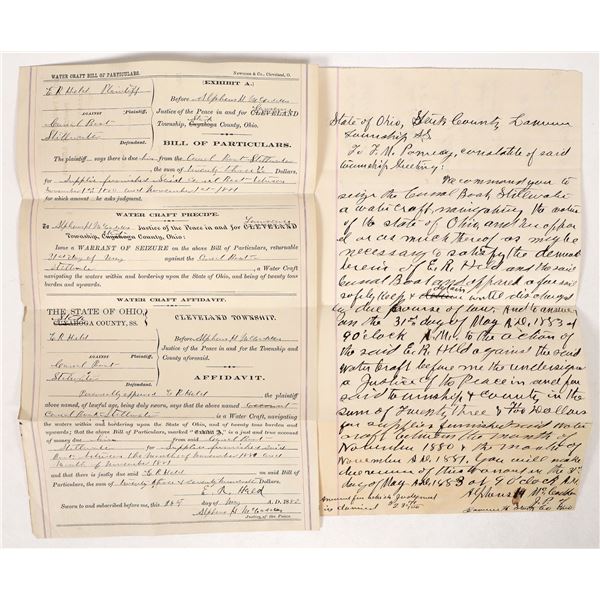 WATER CRAFT BILL OF PARTICULARS.
Newcome & Co., Cleveland, O.
E R Held Plaintiff
AGAINST
Canal Boat
Stillwater
Defendant.
EXHIBIT A.
Before Alphons H McCadden
Justice of the Peace in and for CLEVELAND
Township, Stark Cuyahoga County, Ohio:
BILL OF PARTICULARS.
The plaintiff says there is due him from the Canal Boat Stillwater
the sum of twenty three Dollars,
for Supplies furnished Said Canal Boat between
November 1880 and November 1881
for which amount he asks judgment.
WATER CRAFT PRECIPE.
To Alphons H McCadden Justice of the Peace in and for Lawrence CLEVELAND
Township, Cuyahoga County, Ohio:
Issue a WARRANT OF SEIZURE on the above Bill of Particulars, returnable
31st day of May against the Canal Boat
Stillwater a Water Craft
navigating the waters within and bordering upon the State of Ohio, and being of twenty tons
burden and upwards.
WATER CRAFT AFFIDAVIT.
THE STATE OF OHIO,
Stark
CUYAHOGA COUNTY, SS.
CLEVELAND TOWNSHIP.
E R Held
AGAINST
Canal Boat
Stillwater
Defendant.
Before Alphons H McCadden
a Justice of the Peace in and for the Township and County
aforesaid.
AFFIDAVIT.
Personally appeared E R Held the plaintiff
above named, of lawful age, being duly sworn, says that the above named
Canal Boat Stillwater is a Water Craft, navigating the
waters within and bordering upon the State of Ohio, and of twenty tons burden and
upwards; that the above Bill of Particulars, marked "Exhibit A," is a just and true account
of money due him from said Canal Boat
Stillwater for Supplies furnished Said
Boat between the month of November 1880 and
month of November 1881
and that there is justly due said E R Held on said Bill of
Particulars, the sum of twenty three & Dollars.
E. R. Held
Sworn to and subscribed before me, this 28th day of May A. D. 1883
Alphons H McCadden
Justice of the Peace
State of Ohio, Stark County, Lawrence
Township SS
To F. M. Pomeroy, constable of said
township Greeting;
We command you to
seize the Canal Boat Stillwater
a water craft, navigating the waters
of the state of Ohio and her apparel
or as much thereof as may be
necessary to satisfy the demand
herein of E. R. Held and the said
Canal Boat and apparel
safely keep until discharged
by due process of law. And to answer
on the 31st day of May A.D. 1883 at
9 O'clock A.M. to the action of
the said E. R. Held against the said
water Craft before me the undersigned
a Justice of the Peace in and for
said township & county in the
sum of Twenty Three & Dollars
for supplies furnished said water
craft between the month of
November 1880 & the month of
November A.D. 1881. You will make
due return of this on the 31
day of May A.D. 1883 at 9 O'clock A.M.
Alphons H McCadden
J. P.
Lawrence Stark Co Ohio
Amount for which Judgment
is claimed